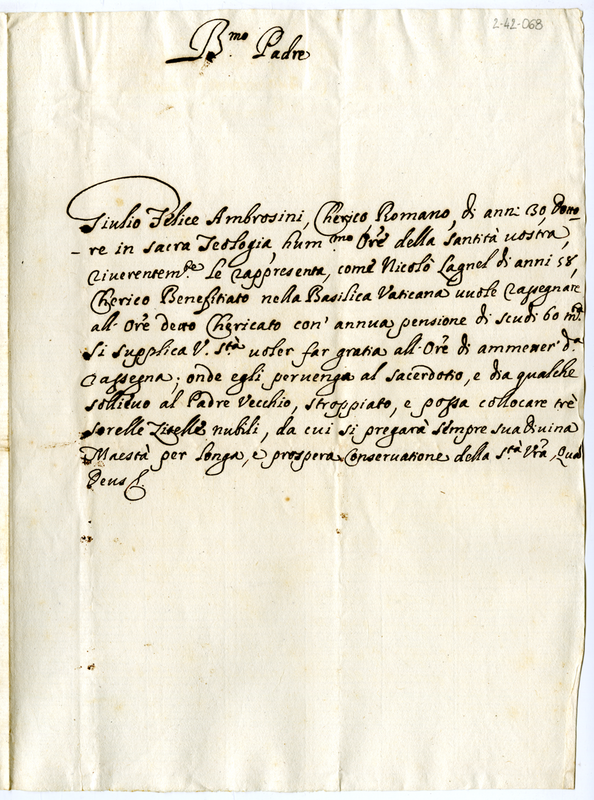 2-42-068
B.mo Padre
Giulio Felice Ambrosini, Cherico Romano, di anni 30, Dotto
-re in sacra Teologia, hum.mo Ore della Santità vostra,
riverentem.te le rappresenta, come Nicolò Lagnel di anni 58,
Cherico Benefitiato nella Basilica Vaticana vuole rassegnare
all'Ore detto Chericato con' annua pensione di scudi 60 m.ta
Si supplica V. S.tà voler far gratia all'Ore di ammetter' d.a
rassegna; onde egli pervenga al sacerdotio, e dia qualche
sollievo al Padre Vecchio, stroppiato, e possa collocare trè
sorelle Zitelle nubili, da cui si pregarà sempre sua divina
Maestà per longa, e prospera Conservatione della S.tà Vra, Quà
Deus